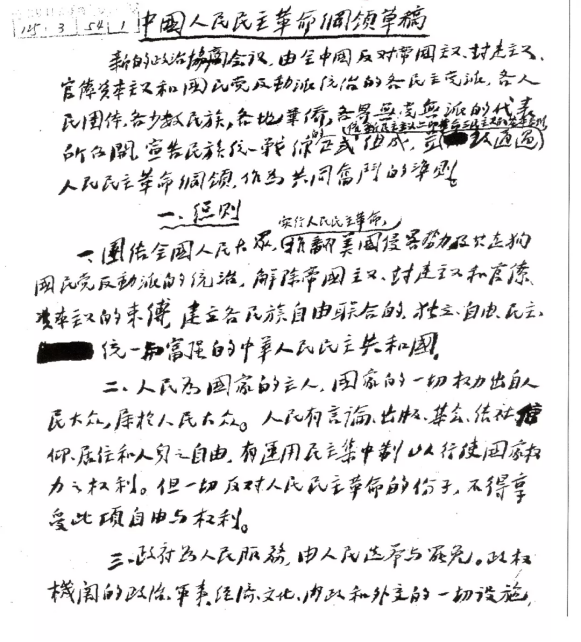 125 3 54 1
中國人民民主革命綱領草稿
新的政治協商会议,由全中國反对帝國主义、封建主义、
官僚资本主义和國民党反動派统治的各民主党派、各人
民團体、各少数民族、各地華僑、各界無党無派的代表
所召開,宣告民族统一戰線的正式组成,並 一致通過
人民民主革命綱領,作為共同奮鬥的準则。
一、總则
实行人民民主革命,
一、團结全國人民大眾, 推翻美國侵畧势力及其走狗
國民党反動派的统治,解除帝國主义、封建主义和官僚
资本主义的束缚,建立各民族自由联合的、独立、自由、民主、
统一和富强的中華人民民主共和國。
二、人民為國家的主人,國家的一切权力出自人
民大众,属於人民大众。人民有言論、出版、集会、结社、信
仰、居住和人身之自由,有運用民主集中制以行使國家权
力之权利。但一切反对人民民主革命的份子,不得享
受此項自由与权利。
三、政府為人民服務,由人民选举与罢免。政权
機関的政治、軍事、经济、文化、内政和外交的一切設施,